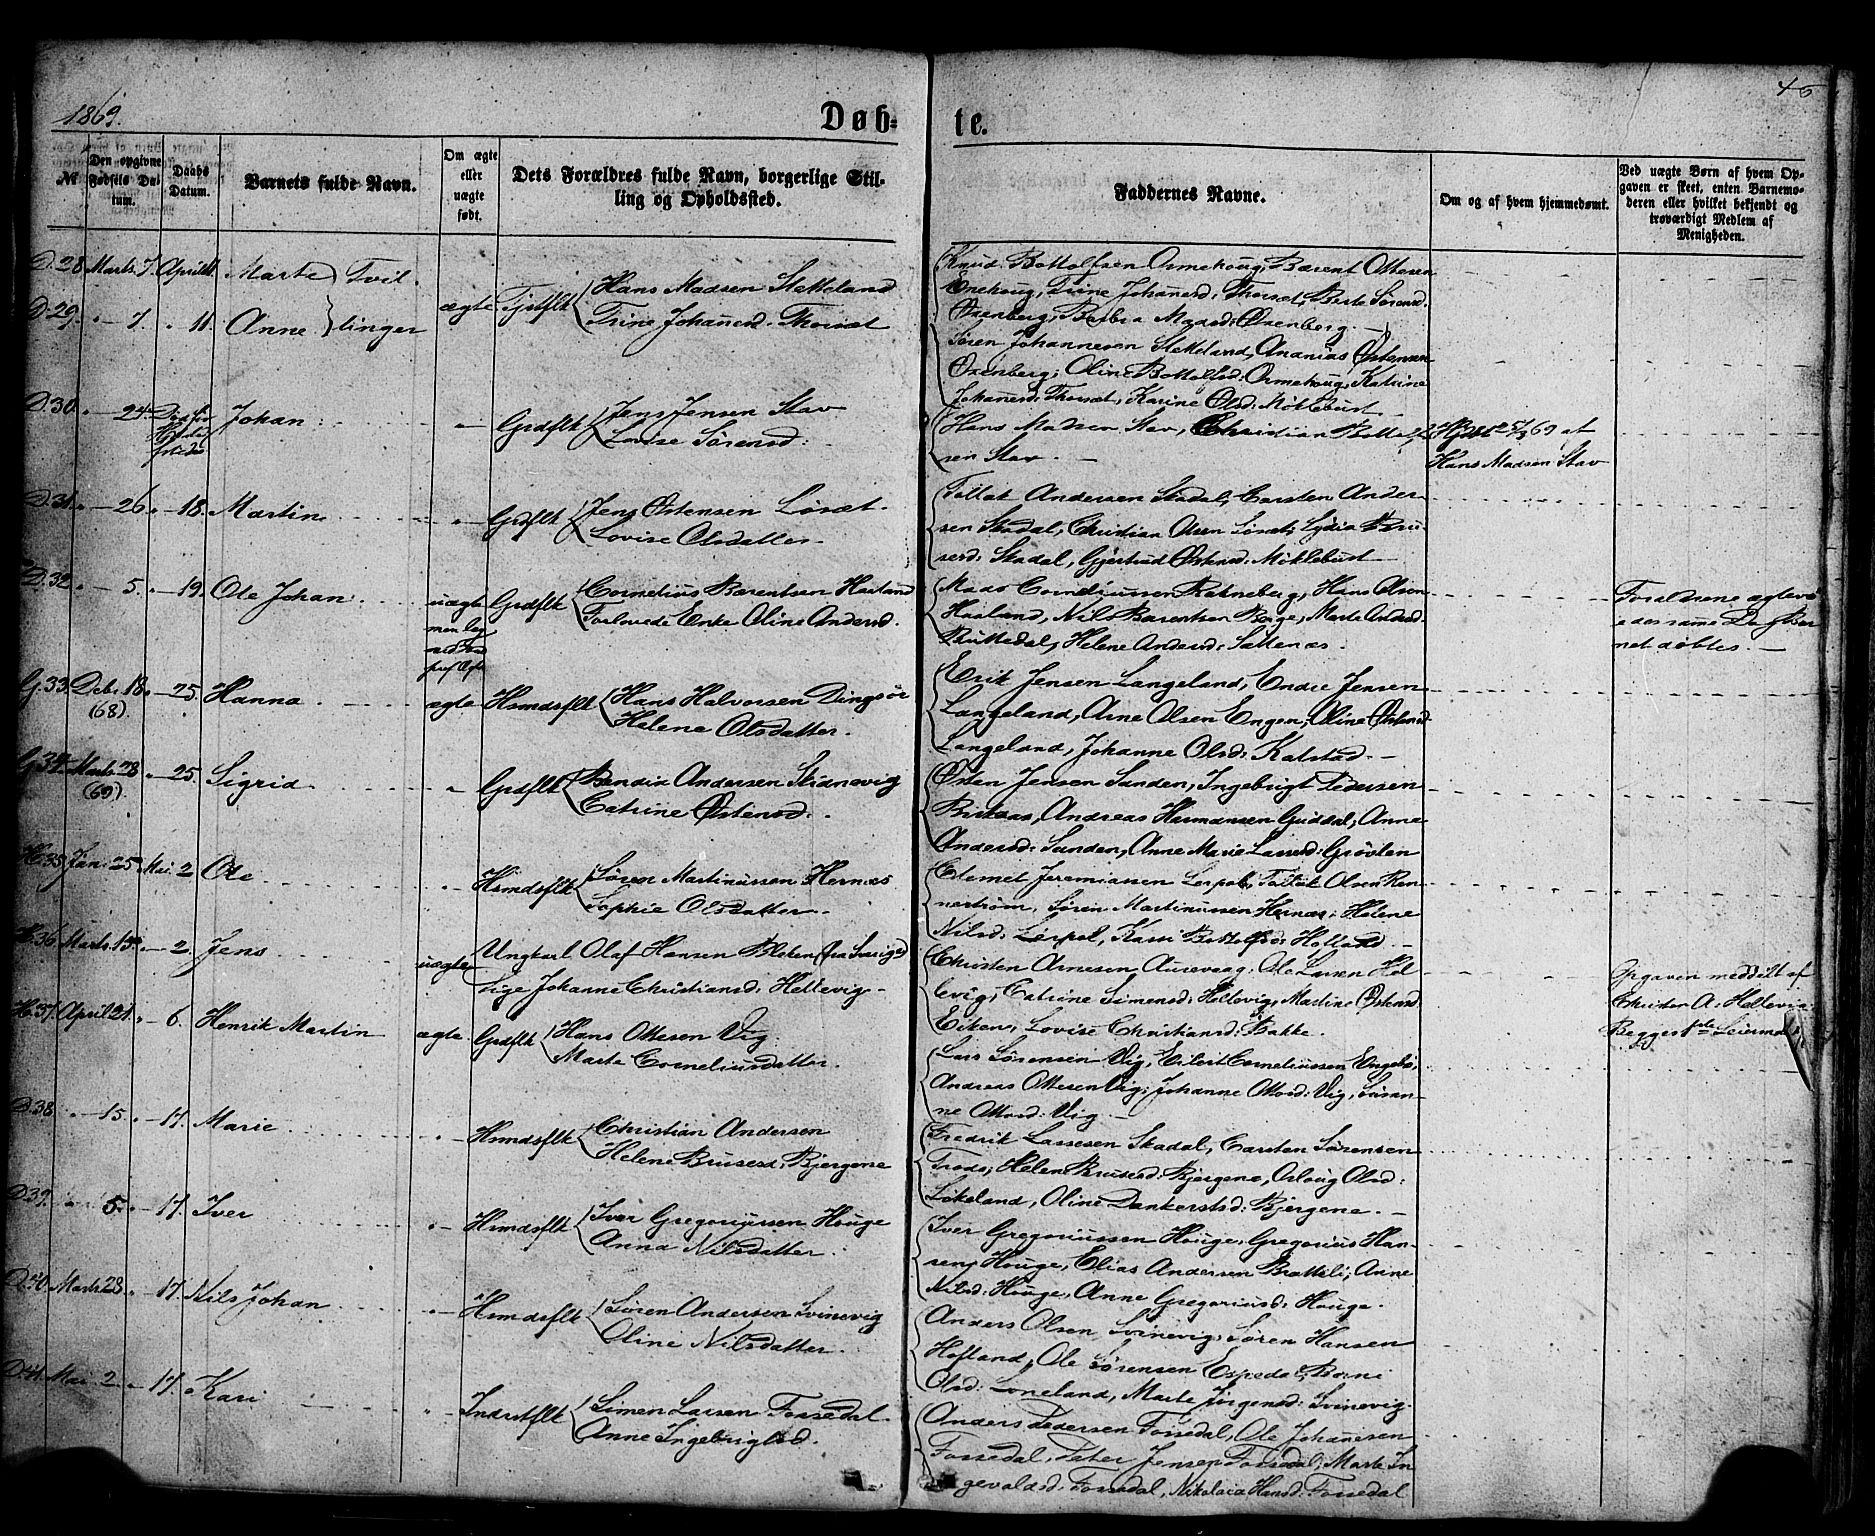 1869.
Døb=
te.
46
№
Den opgivne Fødsels Datum.
Daabs Datum.
Barnets fulde Navn.
Om ægte eller uægte født.
Dets Forældres fulde Navn, borgerlige Stilling og Opholdssted.
Faddernes Navne.
Om og af hvem hjemmedøbt.
Ved uægte Børn af hvem Opgaven er skeet, enten Barnemoderen eller hvilket bekjendt og troværdigt Medlem af Menigheden.
D.28 Marts 7. April 11. Marte } Tvil
D.29. " 7. " 11. Anne } linger
ægte Tjstflk { Hans Madsen Stetteland
Trine Johansd: Thorsæt
Knud Bottolfsen Ormehoug, Bærent Ottesen
Enehoug, Trine Johansd: Thorsæt, Berte Sørensd:
Oxenberg, Barbra Madsd: Oxenberg. —
Søren Johannesen Stetteland, Ananias Østensen
Oxenberg, Oline Bottolfsd: Ormehoug, Katrine
Johansd: Thorsæt, Karine Olsd: Møklebust —
D.30. " 24 Død før
Johan
" Grdflk { Jens Jensen Stav
Lovise Sørensd:
Hans Madsen Stav, Christian Bottolf
sen Stav. —
Hjdbt 25/3 69 af
Hans Madsen Stav
D.31. " 26 " 18. Martin
" Grdflk { Jens Østensen Løsæt
Lovise Olsdatter.
Tollak Andersen Skadal, Carsten Ander-
sen Skadal, Christian Olsen Løsæt, Lydia Bru-
sersd: Skadal, Gjertrud Østensd: Møklebust —
D.32 " 5. " 19. Ole Johan
uægte Grdflk { Cornelius Bærentsen Haaland
Forlovede Enke Oline Andersd.
Mads Corneliussen Rakneberg, Hans Olsen
Haaland, Nils Bærentsen Berge, Marte Andersd:
Bruttedal, Helene Andersd: Sættenæs.
Forældrene ægtevi
edes samme Dag Bar
net døbtes. —
G.33. Debr 18. " 25. Hanna
(68).
ægte Hsmdsflk { Hans Halvorsen Dingsør
Helene Olsdatter.
Erik Jensen Langeland, Endre Jensen
Langeland, Arne Olsen Engen, Oline Østensd:
Langeland, Johanne Olsd: Kalstad. —
G.34. Marts 28 " 25. Sigrid
(69).
" Grdflk { Bendix Andersen Skidnevig
Catrine Østensd:
Østen Jensen Sanden, Ingebrigt Pedersen
Birknæs, Andreas Hermansen Guddal, Anne
Andersd: Sanden, Anne Marie Lassesd: Grøvlen
H.35. Jan: 25. Mai. 2. Ole
" Hsmdsflk { Søren Martinussen Hernæs
Sophie Olsdatter.
Clemet Jeremiassen Leepol, Tollak Olsen Ren-
nestrøm, Søren Martinussen Hernæs, Helene
Nilsd: Leepol, Kari Bottolfsd: Holland. —
H.36 Marts 15 " 2. Jens
uægte Ungkarl Olaf Hansen Bleken (fra Sverige)
Pige Johanne Christiansd: Hellevig —
Christen Arnesen Aurevaag, Ole Larsen Hel
levig, Catrine Simensd: Hellevig, Martine Østensd:
Eiken, Lovise Christiansd: Bakke.
Opgaven meddelt af
Christen A: Hellevig
Begges 1ste Leiermaal
H.37. April 21. " 6. Henrik Martin
ægte Grdflk { Hans Ottesen Vig.
Marte Corneliusdatter.
Lars Sørensen Vig, Eilert Corneliussen Engebø,
Andreas Ottesen Vig, Johanne Ottesd: Vig, Susan-
ne Ottesd: Vig. —
D.38. " 15. " 17. Marie
" Hsmdsflk { Christian Andersen
Helene Brusersd: Bjergene
Fredrik Lassesen Skadal, Carsten Sørensen
Trods, Helene Brusersd: Bjergene, Oslaug Olsd:
Løkeland, Oline Dankertsd: Bjergene. —
D.39. " 5. " 17. Iver
" Hsmdsflk { Iver Gregoriussen Houge
Anna Nilsdatter.
Iver Gregoriussen Houge, Gregorius Han-
sen Houge, Elias Andersen Bratteli, Anne
Nilsd: Houge, Anne Gregoriusd: Houge.
D.40. Marts 28. " 17. Nils Johan
" Hsmdsflk { Søren Andersen Svinevig
Oline Nilsdatter.
Anders Olsen Svinevig, Søren Hansen
Hofland, Ole Sørensen Espedal, Børni
Olsd: Loneland, Marte Jørgensd: Svinevig.
D.41. Mai. 2. " 17. Kari
" Indrstflk { Simen Larsen Fossedal.
Anne Ingebrigtsd.
Anders Pedersen Fossedal, Ole Johansen
Fossedal, Peter Jensen Fossedal, Marte In
gevaldsd: Fossedal, Nikolaia Hansd: Fossedal